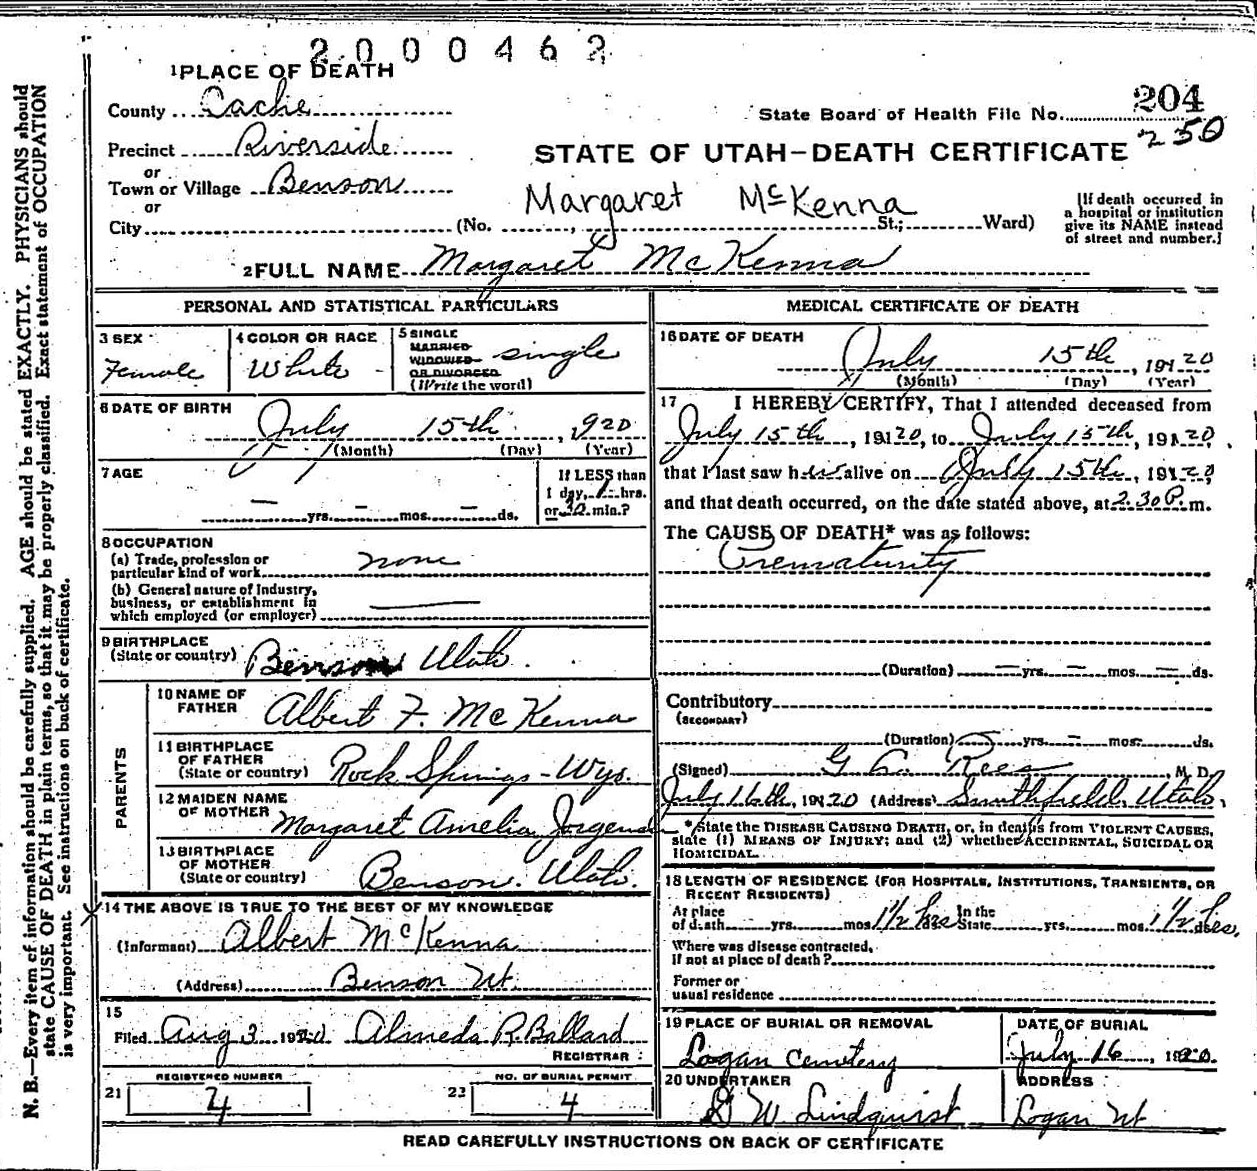 2000462
1 PLACE OF DEATH
County Cache
204
State Board of Health File No.
250
Precinct Riverside
STATE OF UTAH—DEATH CERTIFICATE
or
Town or Village Benson
or
Margaret McKenna
City (No. , St.; Ward)
[If death occurred in
a hospital or institution
give its NAME instead
of street and number.]
2 FULL NAME Margaret McKenna
PERSONAL AND STATISTICAL PARTICULARS
3 SEX
Female
4 COLOR OR RACE
White
5 SINGLE
MARRIED
WIDOWED
OR DIVORCED
(Write the word)
single
6 DATE OF BIRTH
July 15th, 920
(Month) (Day) (Year)
7 AGE
— yrs. — mos. — ds.
If LESS than
1 day, 1 hrs.
or 30 min.?
8 OCCUPATION
(a) Trade, profession or
particular kind of work none
(b) General nature of Industry,
business, or establishment in
which employed (or employer)
9 BIRTHPLACE
(State or country) Benson Utah.
PARENTS
10 NAME OF
FATHER Albert F. McKenna
11 BIRTHPLACE
OF FATHER
(State or country) Rock Springs - Wyo.
12 MAIDEN NAME
OF MOTHER Margaret Amelia Jorgensen
13 BIRTHPLACE
OF MOTHER
(State or country) Benson. Utah.
14 THE ABOVE IS TRUE TO THE BEST OF MY KNOWLEDGE
(Informant) Albert McKenna
(Address) Benson Ut.
15
Filed Aug 3 1920 Almeda R. Ballard
REGISTRAR
REGISTERED NUMBER
21 4
NO. OF BURIAL PERMIT
22 4
MEDICAL CERTIFICATE OF DEATH
16 DATE OF DEATH
July 15th, 1920
(Month) (Day) (Year)
17 I HEREBY CERTIFY, That I attended deceased from
July 15th, 1920, to July 15th, 1920,
that I last saw her alive on July 15th, 1920,
and that death occurred, on the date stated above, at 2.30 P. m.
The CAUSE OF DEATH* was as follows:
Prematurity
(Duration) — yrs. — mos. — ds.
Contributory
(SECONDARY)
(Duration) — yrs. — mos. ds.
(Signed) G. L. Rees, M. D.
July 16th, 1920 (Address) Smithfield, Utah.
*State the DISEASE CAUSING DEATH, or, in deaths from VIOLENT CAUSES,
state (1) MEANS OF INJURY; and (2) whether ACCIDENTAL, SUICIDAL OR
HOMICIDAL.
18 LENGTH OF RESIDENCE (FOR HOSPITALS, INSTITUTIONS, TRANSIENTS, OR
RECENT RESIDENTS)
At place
of death yrs. mos. 1 1/2 hrs In the
State yrs. mos. 1 1/2 hrs.
Where was disease contracted,
if not at place of death?
Former or
usual residence
19 PLACE OF BURIAL OR REMOVAL
Logan Cemetery
DATE OF BURIAL
July 16, 1920.
20 UNDERTAKER
G W Lindquist
ADDRESS
Logan Ut
READ CAREFULLY INSTRUCTIONS ON BACK OF CERTIFICATE
N. B.—Every item of information should be carefully supplied. AGE should be stated EXACTLY. PHYSICIANS should
state CAUSE OF DEATH in plain terms, so that it may be properly classified. Exact statement of OCCUPATION
is very important. See instructions on back of certificate.